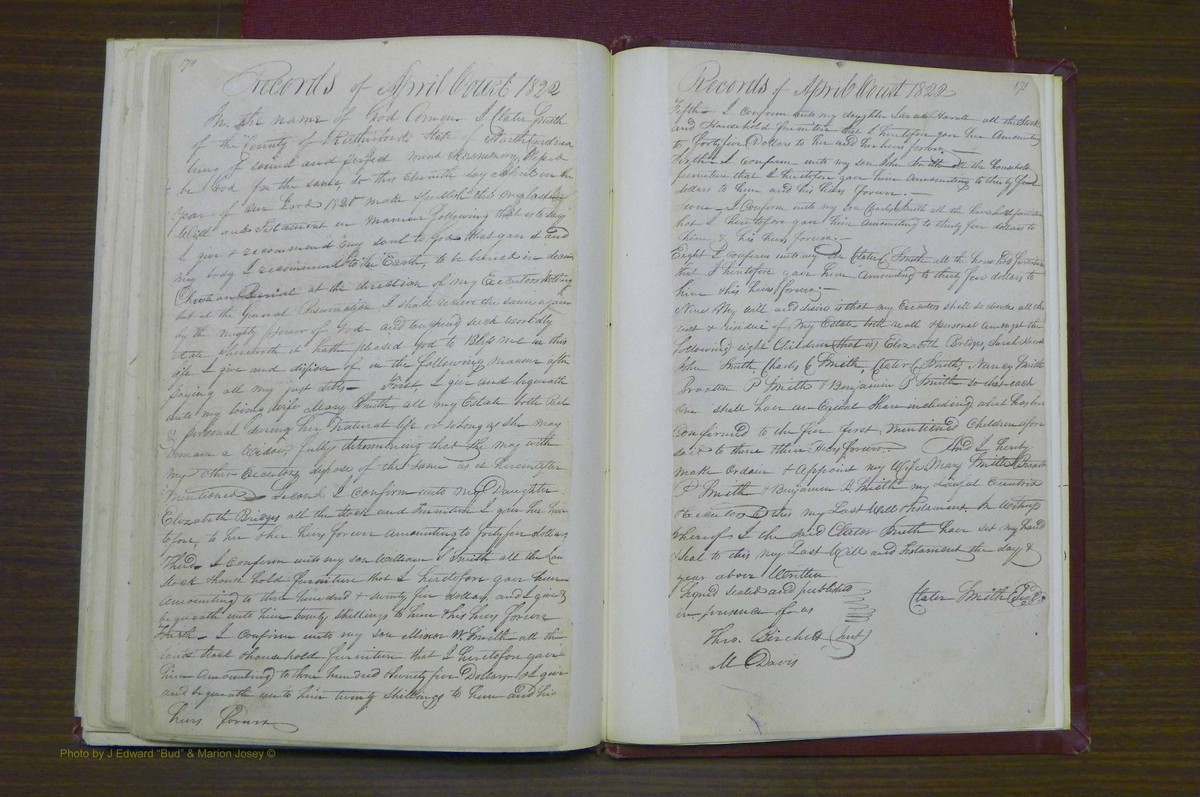 170
Records of April Court 1822
In the name of God Amen I Clater Smith
of the County of Rutherford State of North Carolina
being of sound and perfect mind & memory, blessed
be God for the same, do this Eleventh day of
year of our Lord 1820 make & publish this my last
Will and Testament in Manner following that is to say
I give & recommend my soul to God that gave it and
my body I recommend to the Earth, to be buried in decent
Christian Burial at the direction of my Executors Nothing
but at the General Resurrection I shall receive the same again
by the mighty power of God and touching such worldly
Estate wherewith it hath pleased God to Bless me in this
life I give and dispose of in the following manner after
paying all my just debts First I give and bequeath
unto my loving wife Mary Smith, all my Estate both Real
& personal during her Natural life or as long as She may
remain a Widow, fully determining that She may with
my other Executors dispose of the same as is hereinafter
Mentioned Second I Confirm unto my Daughter
Elizabeth Bridges all the Stock and furniture I give her here
tofore, to her & her heirs forever Amounting to forty five dollars
Third I Confirm unto my son William S Smith all the Land
Stock & house hold furniture that I heretofore gave him
Amounting to three hundred & seventy five dollars, and I give &
bequeath unto him twenty shillings to him & his heirs forever
Forth I Confirm unto my son W. Smith all the
land Stock & household furniture that I heretofore gave
him Amounting to three hundred & twenty five Dollars & I give
and bequeath unto him twenty Shillings to him and his
heirs forever
Records of April Court 1822
171
Fifth I Confirm unto my daughter Sarah all the Stock
and Household furniture that I heretofore gave her Amounting
to forty five Dollars to her and her heirs forever.
Sixth I Confirm unto my son John the household
furniture that I heretofore gave him Amounting to thirty five
dollars to him and his heirs forever.
seven I Confirm unto my son Charles Smith all the household furniture
that I heretofore gave him Amounting to thirty five dollars to
him & his heirs forever
Eight I Confirm unto my Son Clater Smith all the house hold furniture
that I heretofore gave him Amounting to thirty five dollars to
him & his heirs forever
Nine My will and desire is that my Executors shall so divide all the
rest & residue of My Estate both real & personal amongst the
following eight Children (that is) Elizabeth Bridges, Sarah
John Smith Charles C Smith, Clater C Smith, Nancy Smith
Braxton P Smith & Benjamin P Smith so that each
one shall have an Equal Share including what has been
Confirmed to the five first Mentioned Children afore
said to them & their Heirs forever. And I hereby
make Ordain & Appoint my Wife Mary Smith, Braxton
P Smith & Benjamin P Smith my Lawful Executrix
& Executors to this my Last Will & Testament In Witness
whereof I the said Clater Smith have set my hand
& seal to this my Last Will and Testament the day &
year above Written
Signed sealed and published
in presence of us
Clater Smith (Seal)
Thos. Birchett (Jurat)
M Davis
Photo by J Edward "Bud" & Marion Josey ©